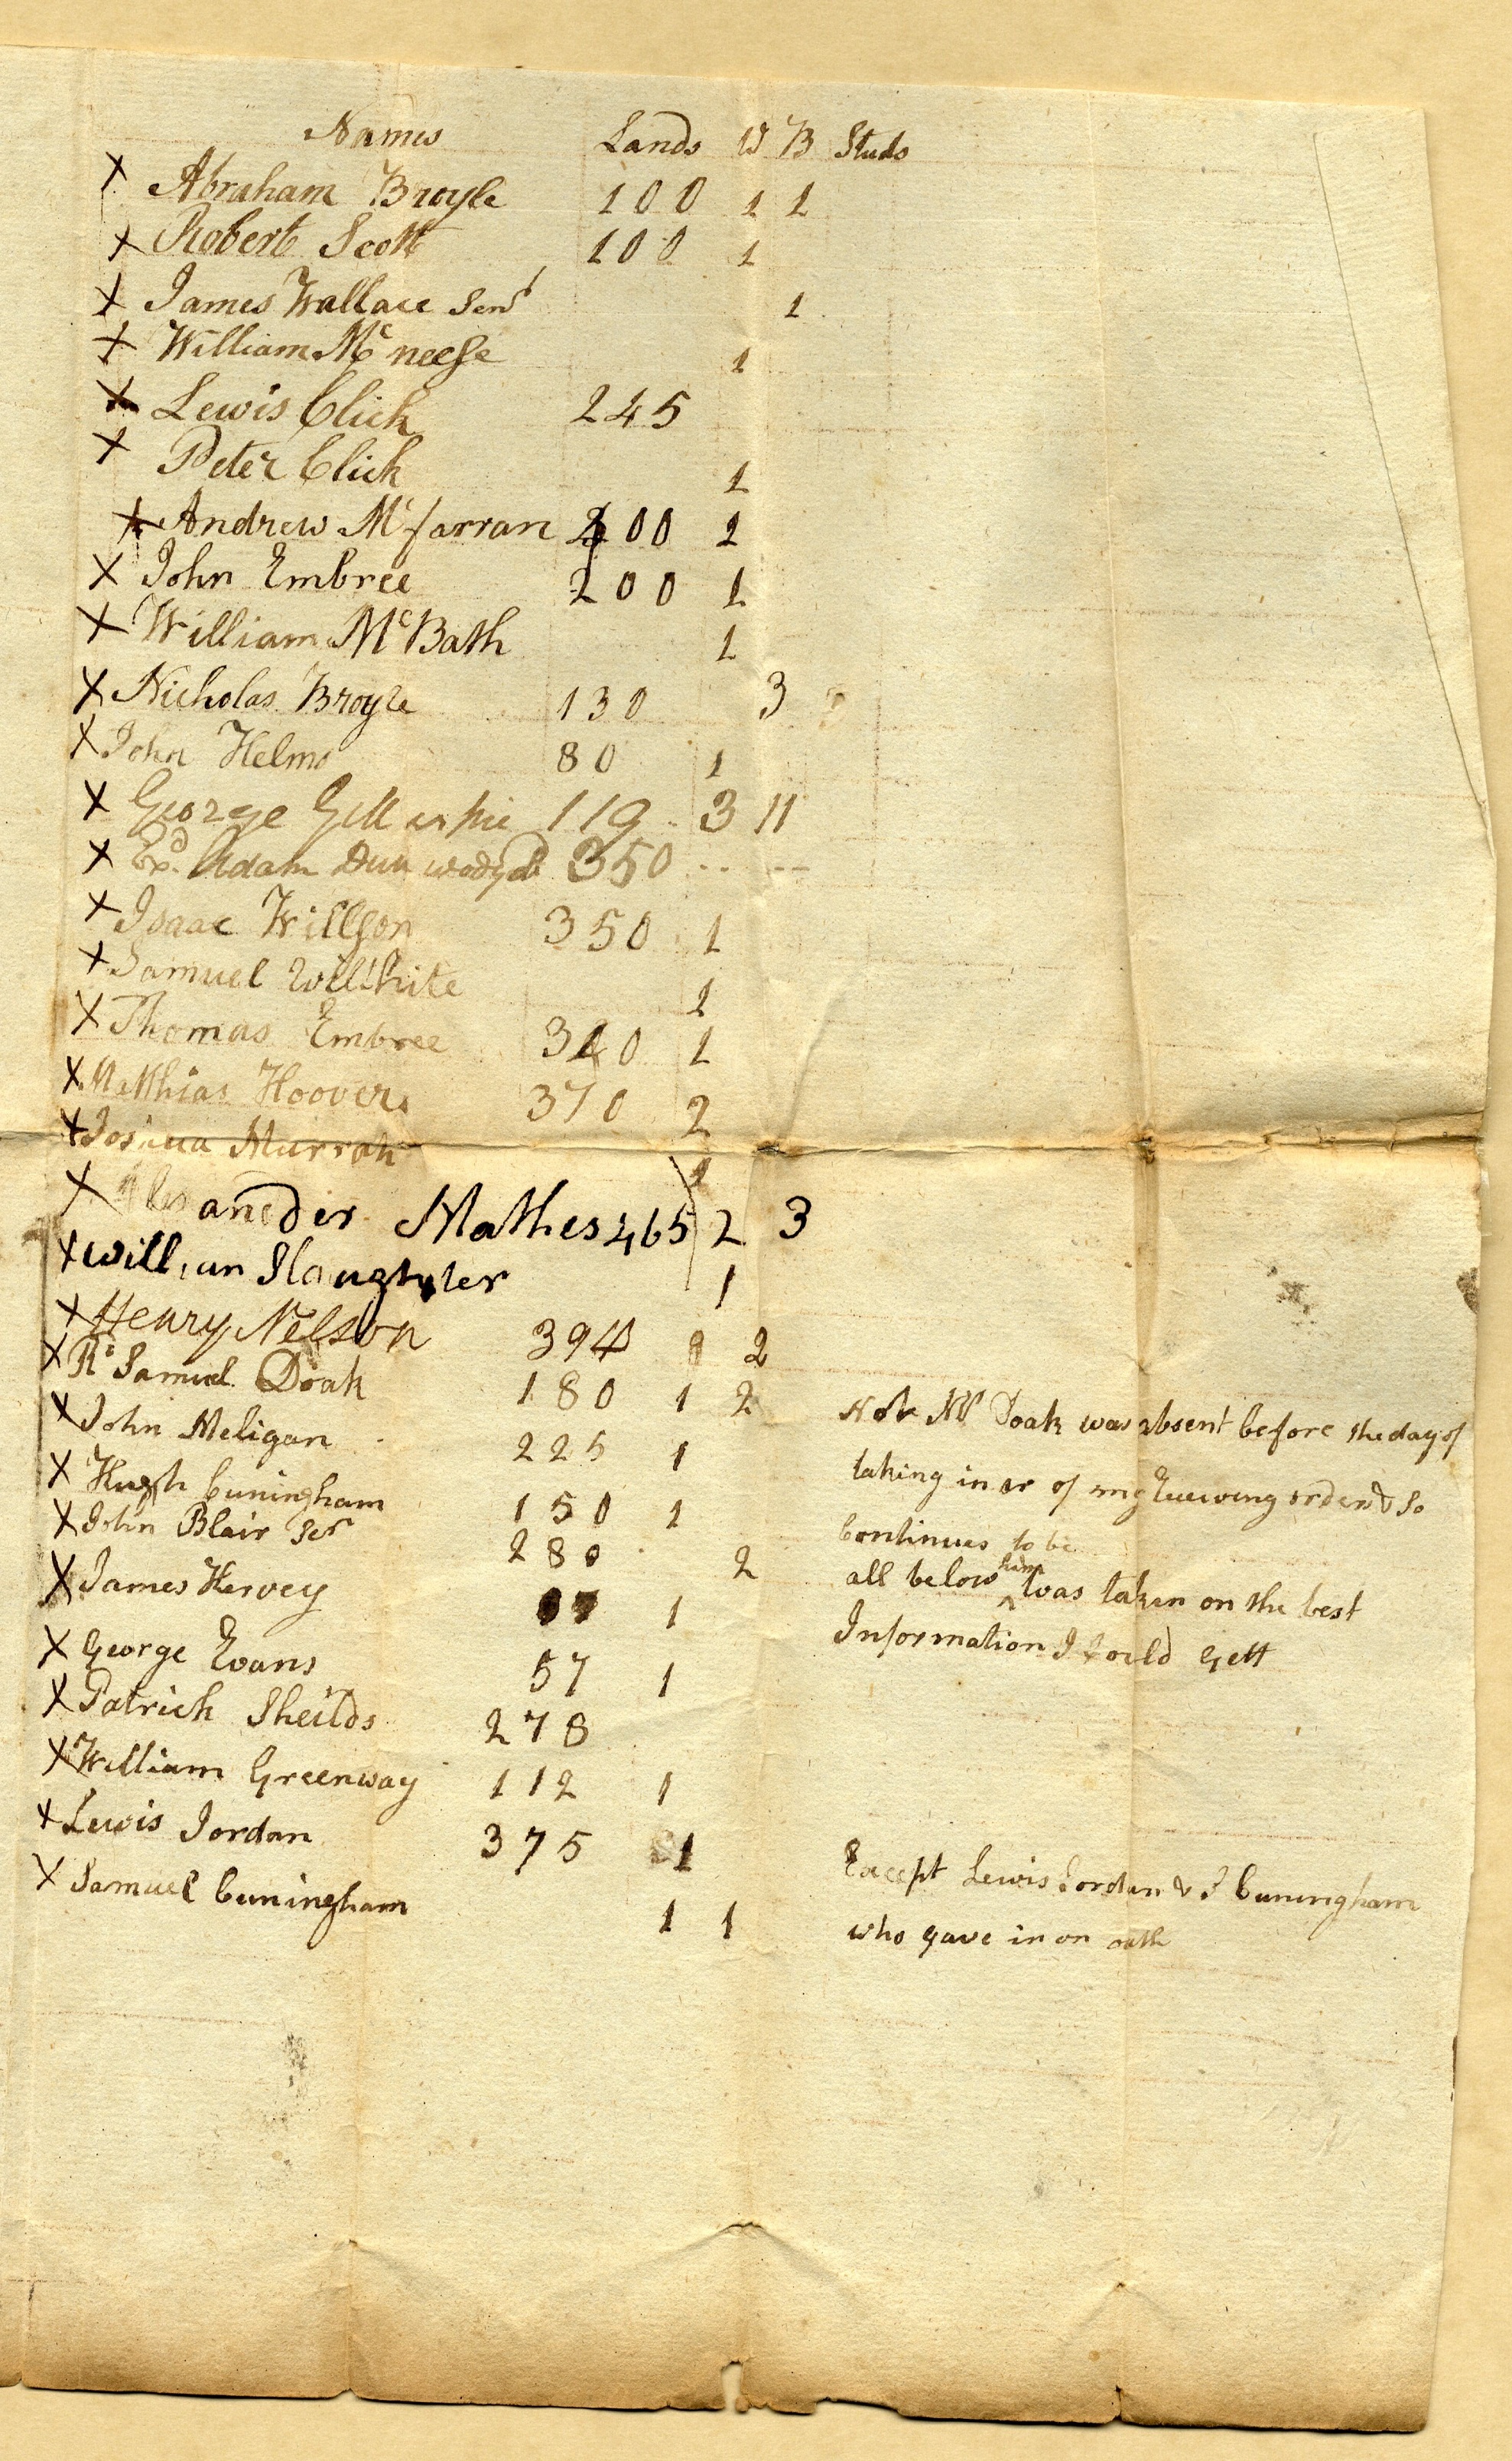 Names Lands W B Studs
X Abraham Broyle 100 1 1
X Robert Scott 100 1
X James Wallace Senr 1
X William Mc neese 1
X Lewis Click 245
X Peter Click 1
X Andrew Mc farran 200 1
X John Embree 200 1
X William McBath 1
X Nicholas Broyle 130 3
X John Helms 80 1
X George Gillespie 119 3 11
X Adam 350
X Isaac Willson 350 1
X Samuel Willhite 1
X Thomas Embree 340 1
X Matthias Hoover 370 2
X Joshua Murrah 1
X Alexander Mathes 465 2 3
X William Slaughter 1
X Henry Nelson 394 2
X Rd Samuel Doak 180 1 2
X John Meligan 225 1
X Hugh Cuningham 150 1
X John Blair Ser 280 2
X James Hervey 1
X George Evans 57 1
X Patrick Sheilds 278
X William Greenway 112 1
X Lewis Jordan 375 1
X Samuel Cuningham 1 1
Note Mr Doak was absent before the day of
taking in of my order & So
Continues to be
all below him was taken on the best
Information I Could Gett
Except Lewis Jordan & S Cuningham
who gave in on oath